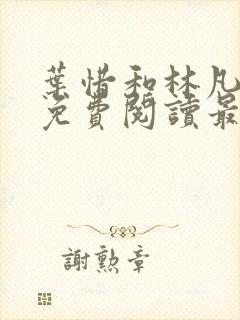 葉惜和林凡
免費閱讀最
謝勲章